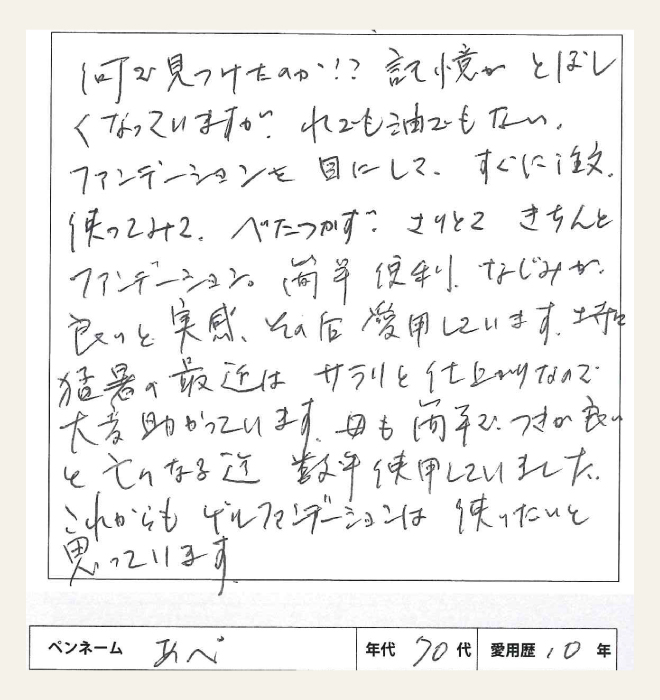 何で見つけたのか!? 記憶が とぼし
くなっていますが、水でも油でもない、
ファンデーションを 目にして、すぐに注文。
使ってみて、べたつかず、さりとて きちんと
ファンデーション。簡単 便利、なじみが、
良いと 実感、その后 愛用しています。
猛暑の 最近は サラリと 仕上がりなので
大変 助かっています。母も 簡単で、つきが 良い
と 亡くなる迄 数年 使用していました。
これからも ゲルファンデーションは 使いたいと
思っています。
ペンネーム あべ 年代 70 代 愛用歴 10 年